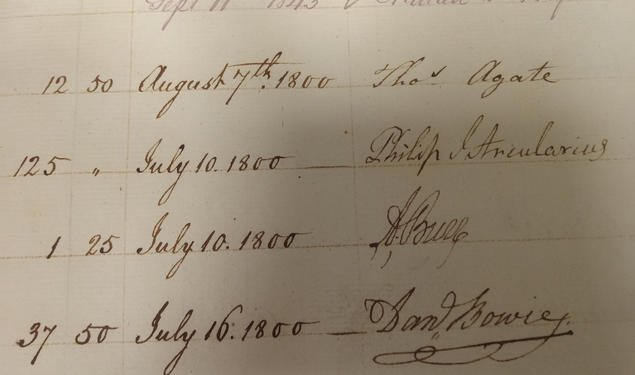 Sept 11 1843
12 50 August 7th. 1800 Thos Agate
125 " July 10. 1800 — Philip I Arcularius
1 25 July 10. 1800 A, Burr
37 50 July 16. 1800 — Danl Bowie